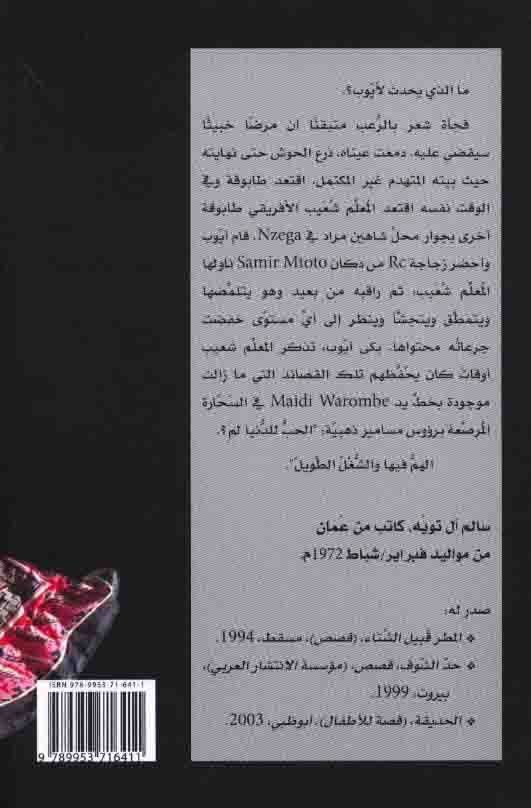 ما الذي يحدث لأيّوب؟.
فجأة شعر بالرُّعب متيقنًا ان مرضًا خبيثًا
سيقضي عليه. دمعت عيناه، ذرع الحوش حتى نهايته
حيث بيته المتهدم غير المكتمل. اقتعد طابوقة وفي
الوقت نفسه اقتعد المُعلّم شُعَيب الأفريقي طابوقة
أخرى بجوار محلّ شاهين مراد في Nzega. قام أيّوب
وأحضر زجاجة Rc من دكان Samir Mtoto ناولها
المُعلّم شُعَيب؛ ثم راقبه من بعيد وهو يتلمّضها
ويتمطّق ويتجشّأ وينظر إلى أيّ مستوًى خفضت
جرعاتُه محتواها. بكى أيّوب، تذكر المُعلّم شعيب
أوقات كان يحفّظهم تلك القصائد التي ما زالت
موجودة بخطّ يد Maidi Warombe في السّحّارة
المُرصّعة برؤوس مسامير ذهبيّة: "الحبُّ للدُّنيا لم؟.
الهمُّ فيها والشُّغْلُ الطَّويلُ".
سالم آل تويّه، كاتب من عُمان
من مواليد فبراير/شباط 1972م.
صدر له:
❖ المطر قُبيل الشّتاء، (قصص)، مسقط، 1994.
❖ حدّ الشّوف، قصص، (مؤسسة الانتشار العربي)،
بيروت، 1999.
❖ الحديقة، (قصة للأطفال)، أبوظبي، 2003.
ISBN 978-9953-71-641-1
9 789953 716411